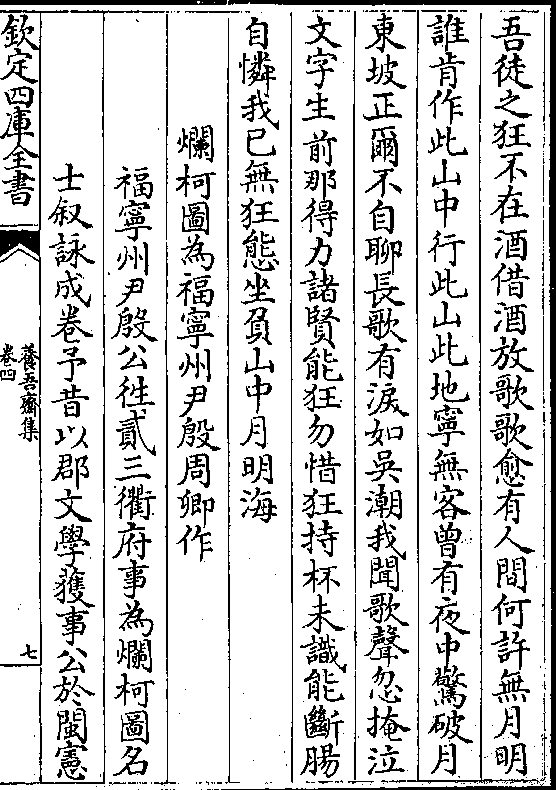 吾徒之狂不在酒借酒放歌歌愈有人間何許無月明
誰肯作此山中行此山此地寧無客曾有夜中驚破月
東坡正爾不自聊長歌有淚如吳潮我聞歌聲忽掩泣
文字生前那得力諸賢能狂勿惜狂持杯未識能斷腸
自憐我已無狂態坐負山中月明海
爛柯圖為福寧州尹殷周卿作
福寧州尹殷公徃貳三衢府事為爛柯圖名
士叙詠成卷予昔以郡文學獲事公於閩憲
欽定四庫全書
養吾齋集
卷四
七